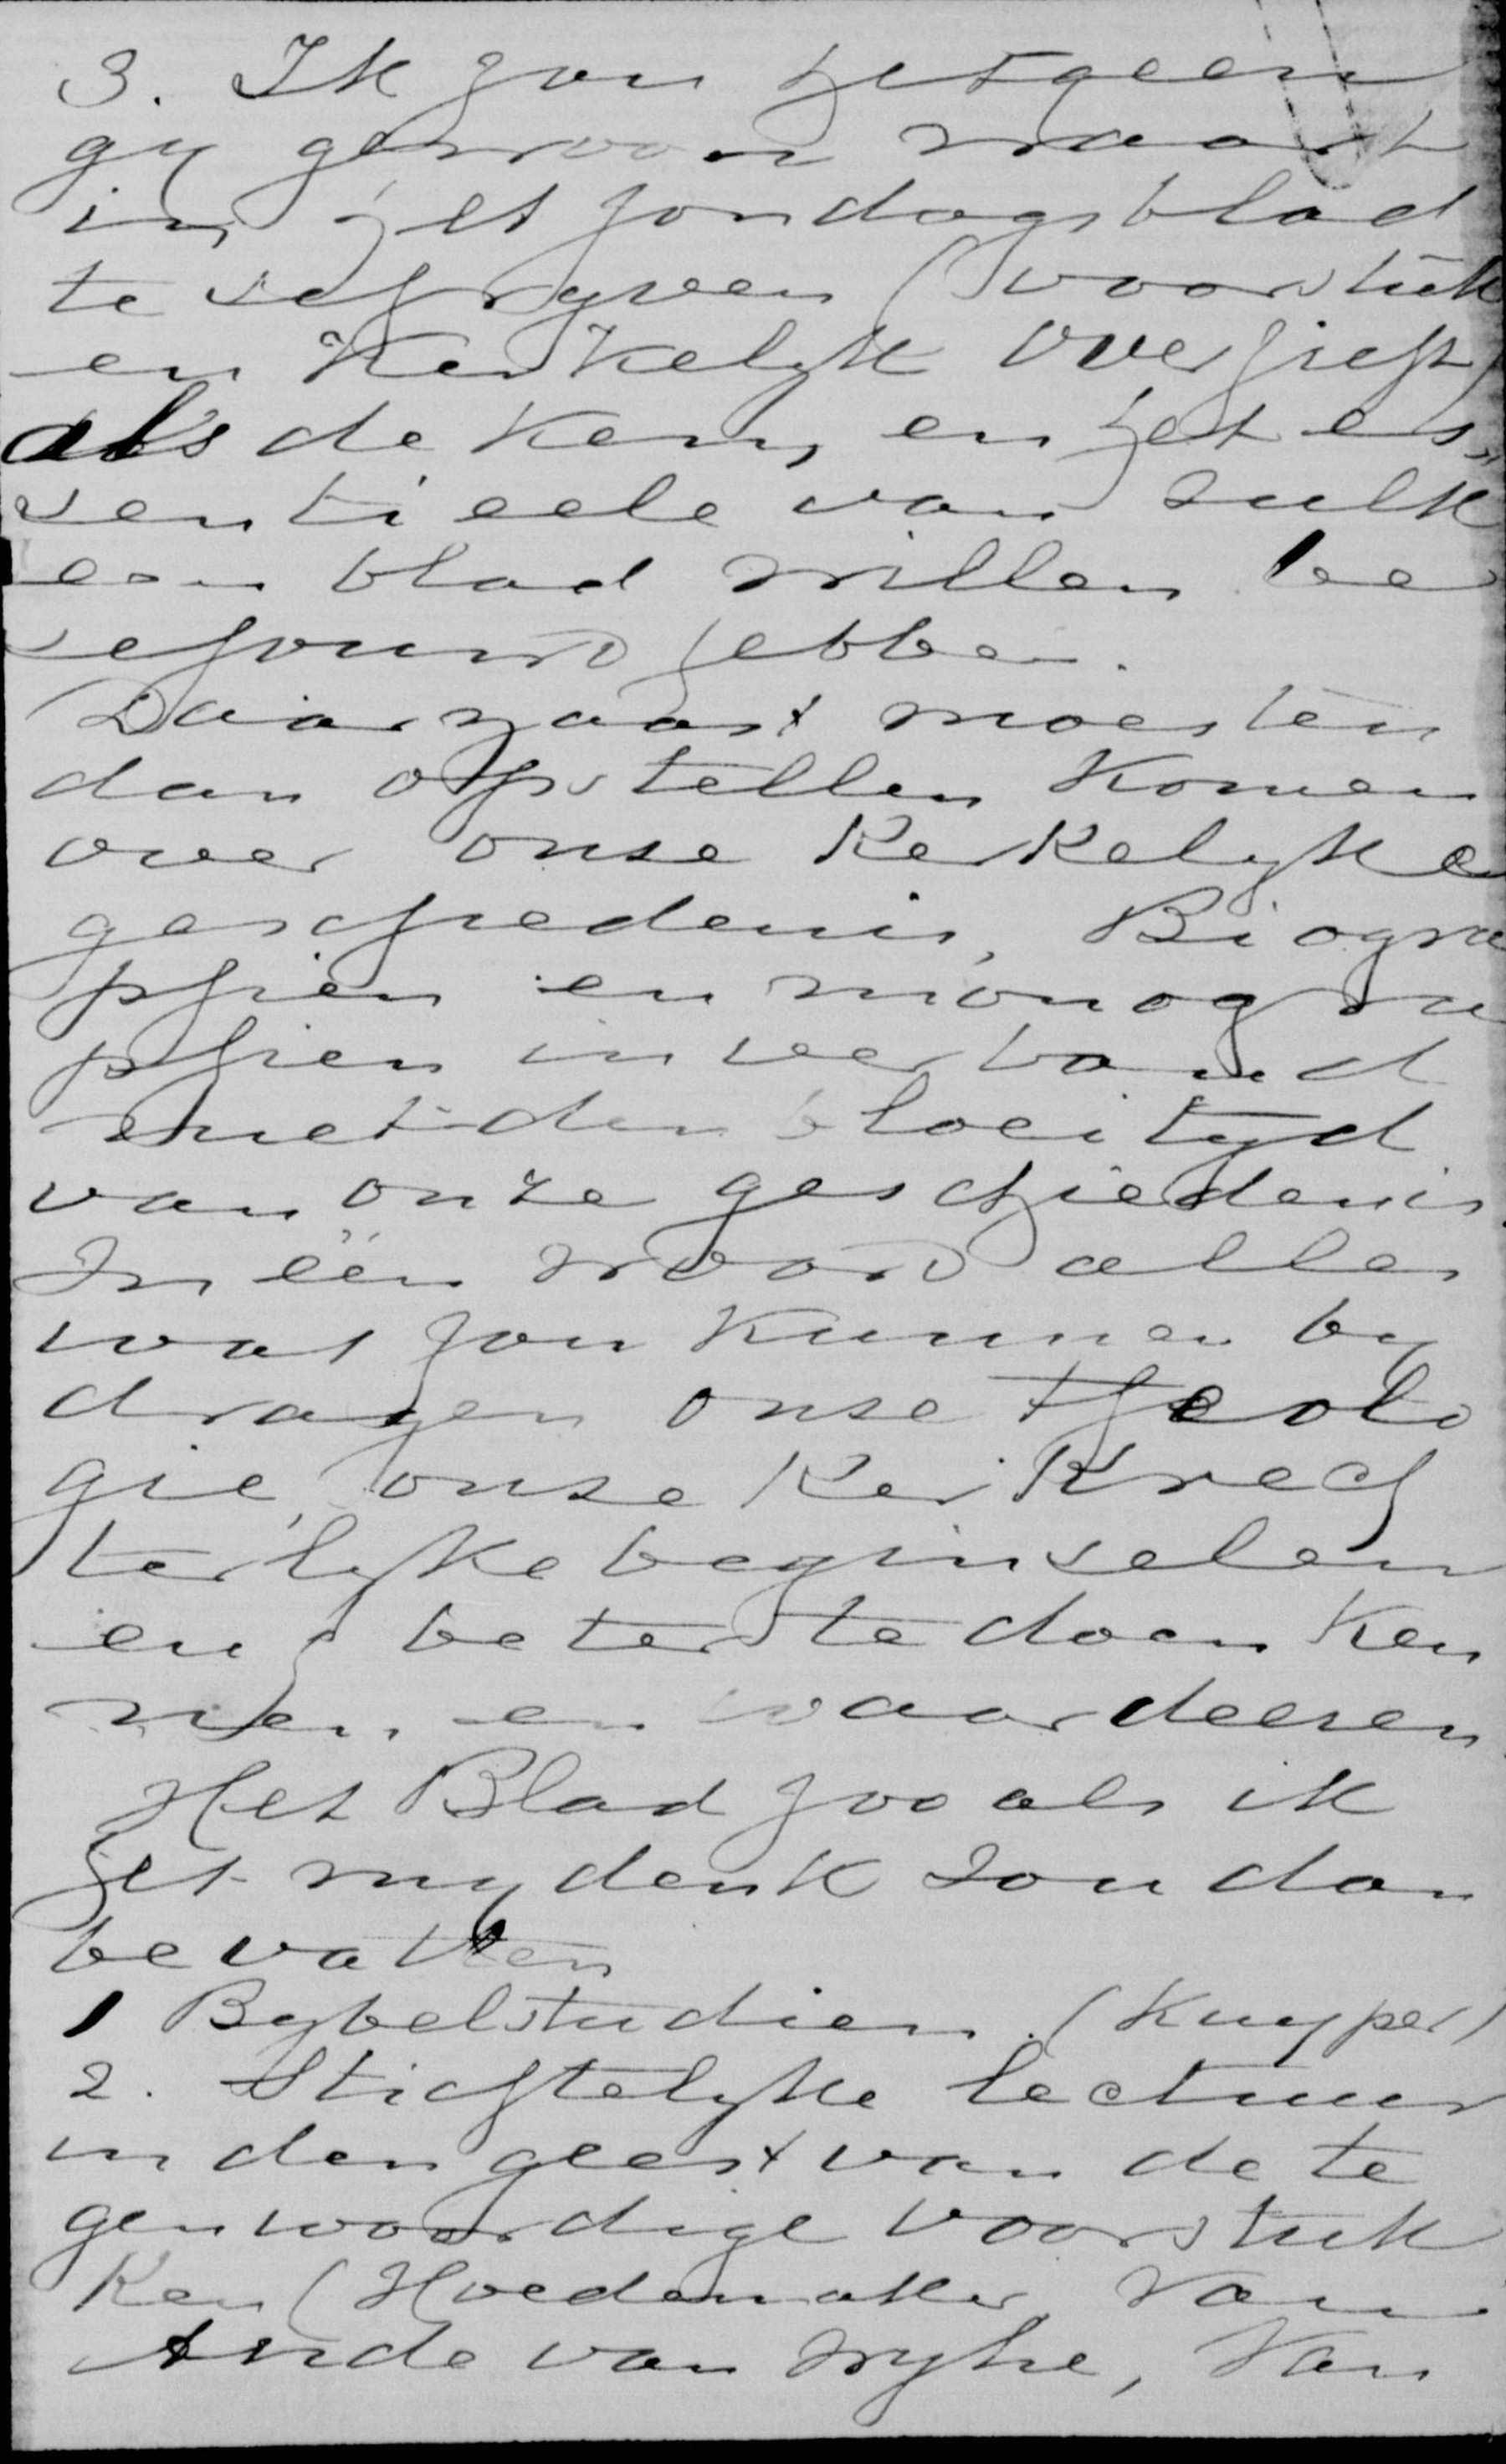 3. Ik zou hetgeen
gy gewoon waart
in het zondagsblad
te schryven (voorstuk
en Kerkelyk overzicht)
als de kern en het es„
sentieele van zulk
een blad willen be
schouwd hebben.
Daarnaast moesten
dan opstellen komen
over onse Kerkelyke
geschiedenis, Biogra
phien en monogra
phien in verband
met den bloeityd
van onze geschiedenis.
In één woord alles
wat zou kunnen by
dragen onse Theolo
gie, onse Kerkrech
terlyke beginselen
enz beter te doen ken
nen en waardeeren
Het Blad zooals ik
het my denk zou dan
bevatten
1 Bybelstudien. (Kuyper)
2. Stichtelyke lectuur
in den geest van de te
genwoordige voorstuk
ken (Hoedemaker, Van
Ande van Wyhe, Van